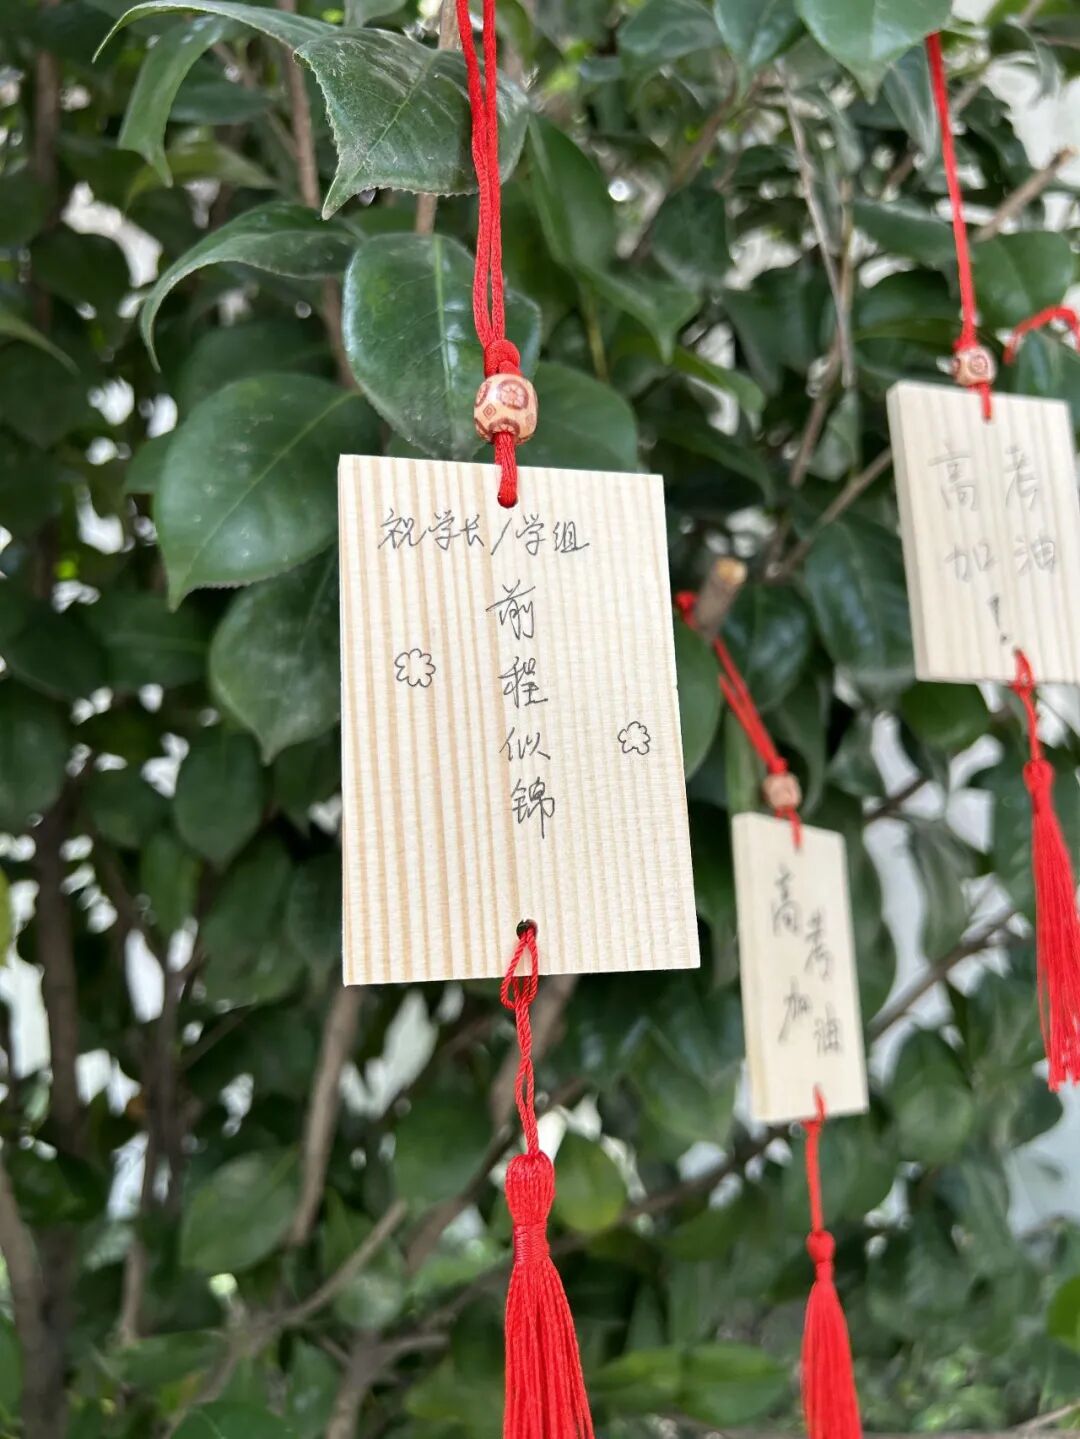 祝学长/学组
前
程
似
锦
高考
加油
!
高考
加油